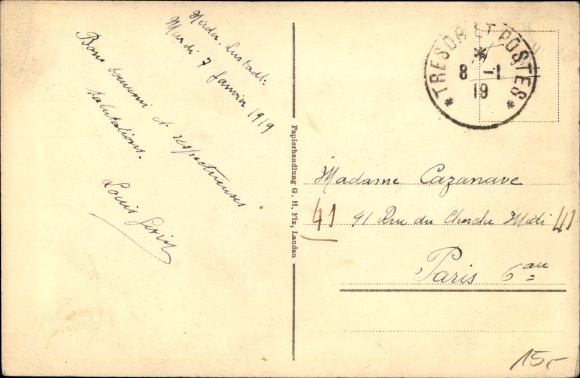 Nieder-Lustadt.
Mardi 7 Janvier 1919
Bons souvenirs et respectueuses
salutations.
Louis
TRESOR ET POSTES
8 -1
19
Papierhandlung G. H. Fix, Landau
Madame Cazanave
41 91 Rue du Cherche Midi 41
Paris 6
15,-